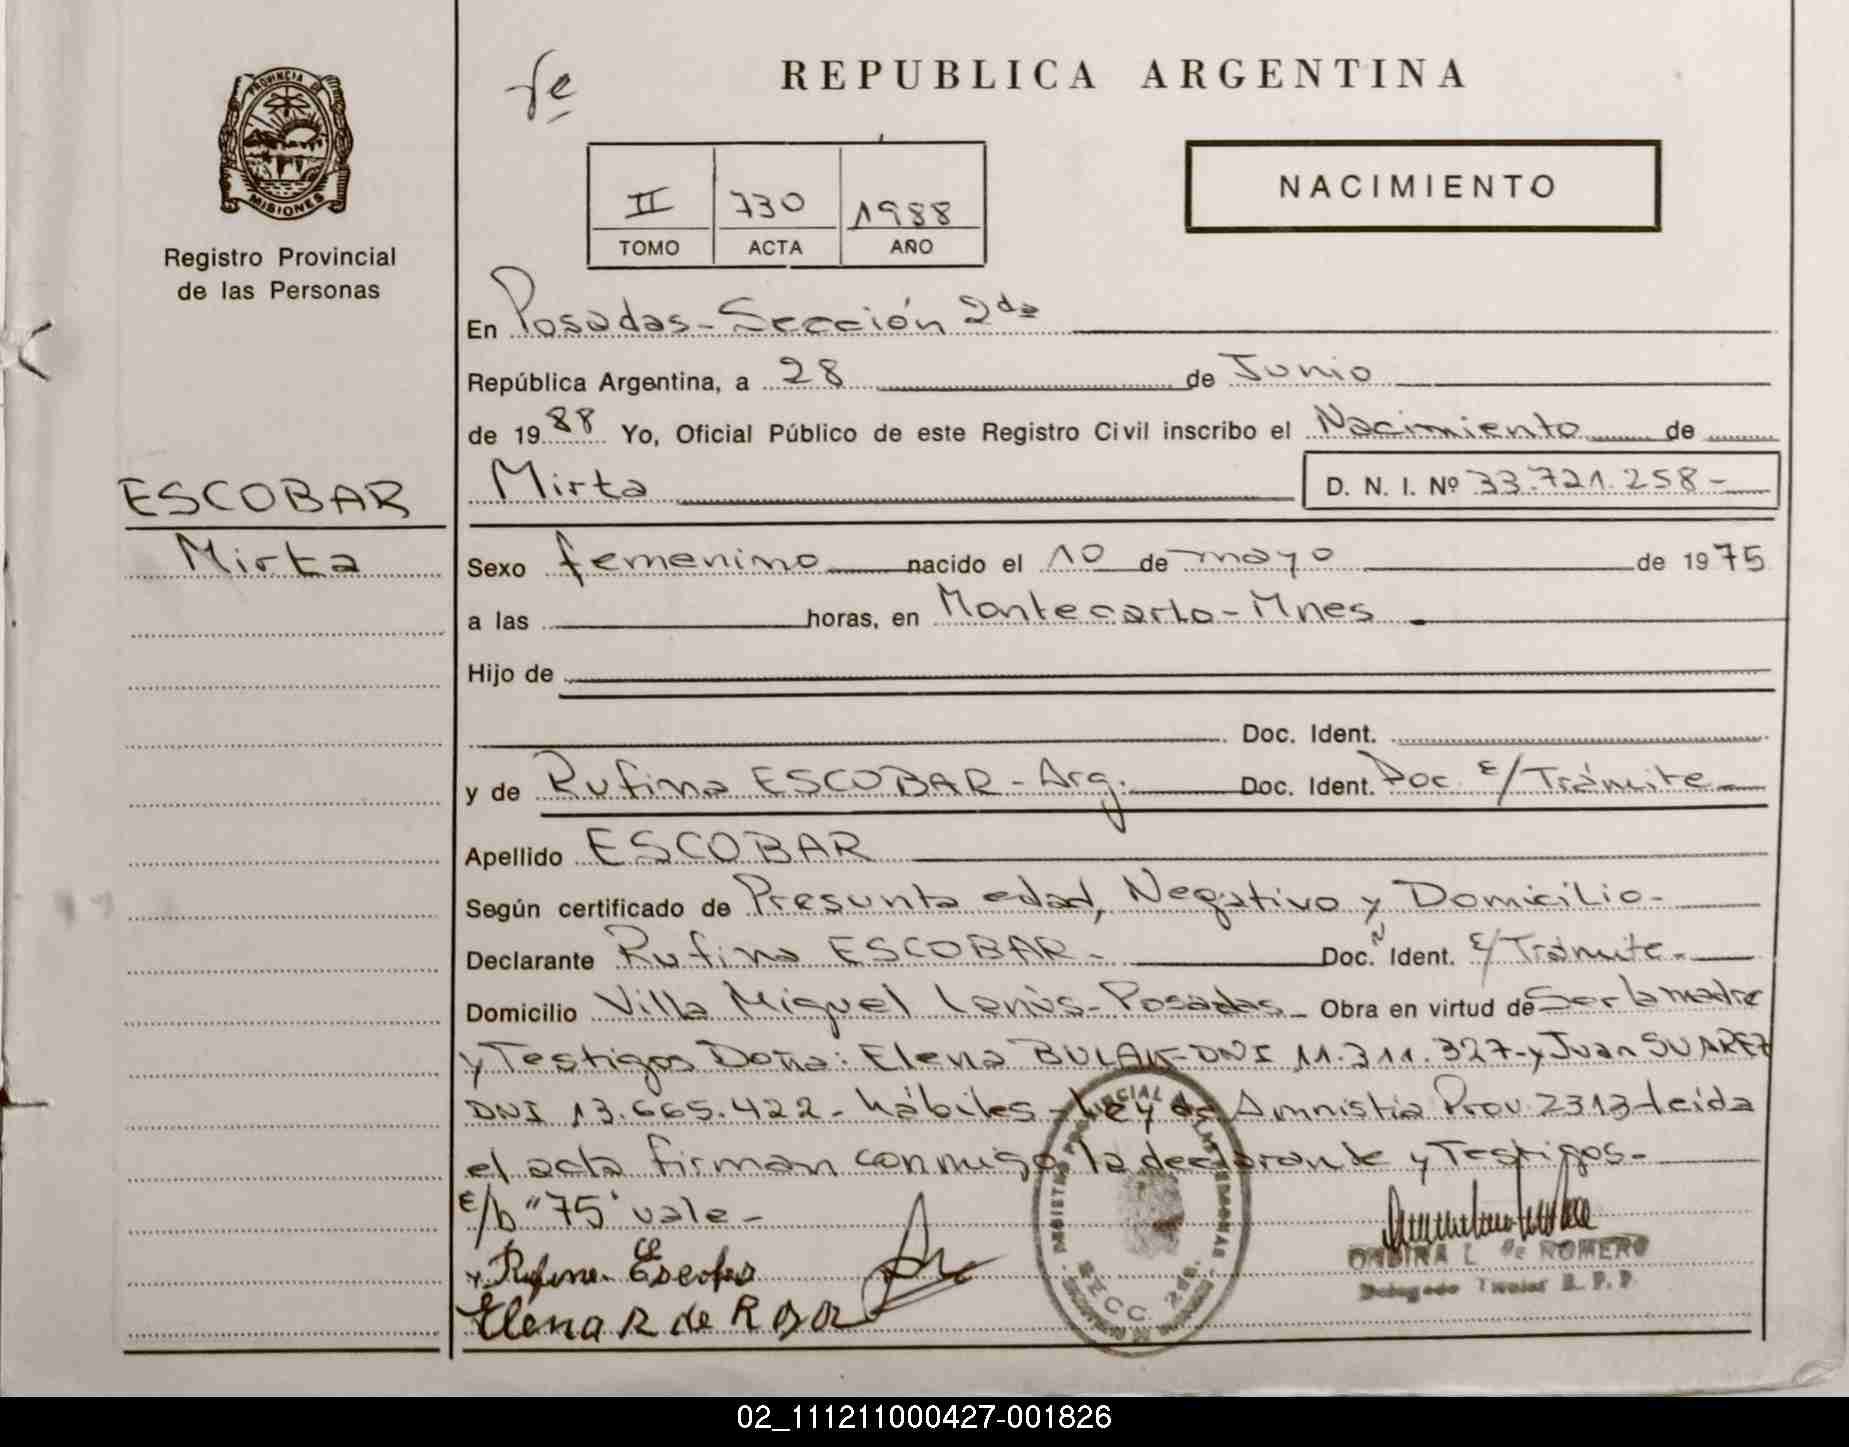 PROVINCIA DE
MISIONES
Registro Provincial
de las Personas
ESCOBAR
Mirta
REPUBLICA ARGENTINA
II 730 1988
TOMO ACTA AÑO
NACIMIENTO
En Posadas - Sección 2da
República Argentina, a 28 de Junio
de 1988 Yo, Oficial Público de este Registro Civil inscribo el Nacimiento de
Mirta D. N. I. Nº 33.721.258-
Sexo femenino nacido el 10 de mayo de 1975
a las horas, en Montecarlo - Mnes
Hijo de
Doc. Ident.
y de Rufina ESCOBAR - Arg. Doc. Ident. Doc. E/Trámite
Apellido ESCOBAR
Según certificado de Presunta edad, Negativo y Domicilio-
Declarante Rufina ESCOBAR- Doc. Ident. E/Trámite-
Domicilio Villa Miguel Lanús - Posadas- Obra en virtud de Ser la madre
y Testigos Doña: Elena BULAK- DNI 11.311.327- y Juan SUAREZ
DNI 13.665.422- hábiles - Ley de Amnistia Prov 2313- leída
el acta firman conmigo la declarante y Testigos-
E/b "75" vale-
Rufina Escobar
Elena R de
SECC 2da.
L de ROMERO
Delegado Titular R. P. P.
02_111211000427-001826